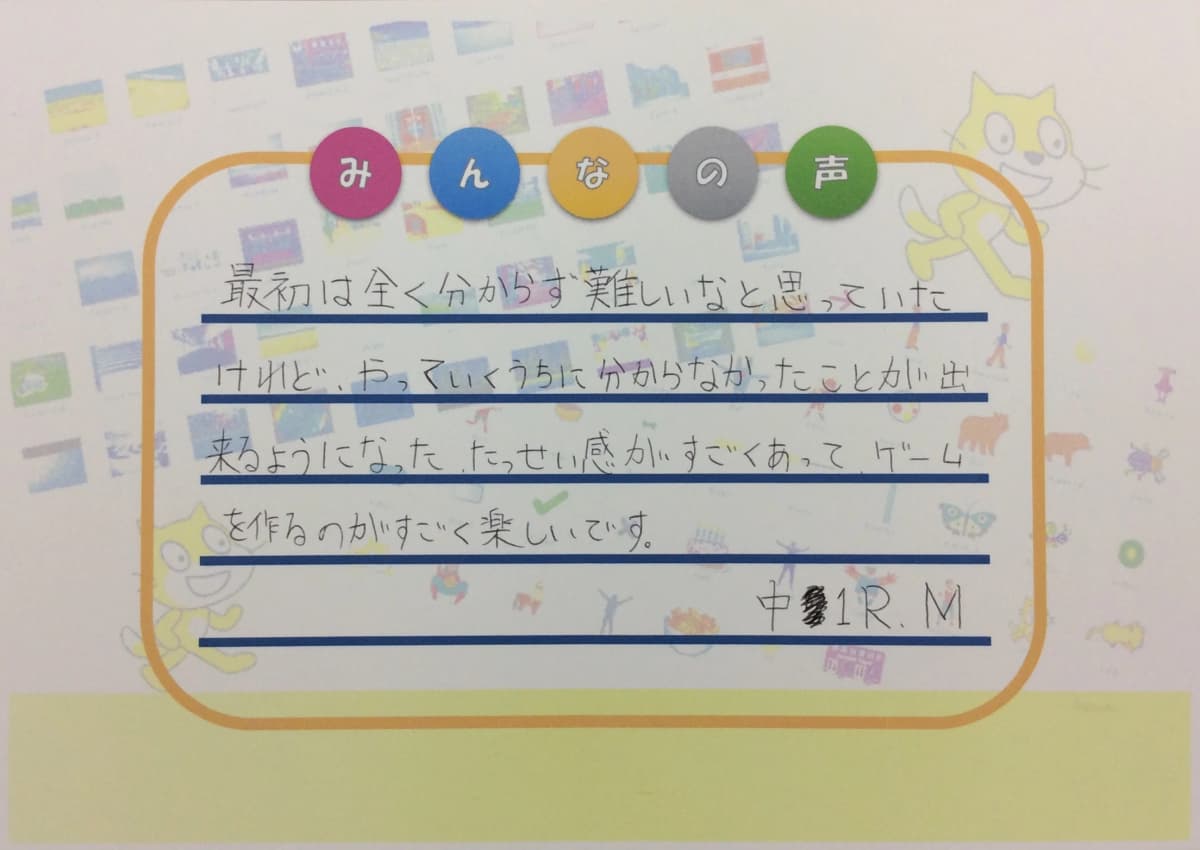 みんなの声
最初は全く分からず難しいなと思っていた
けれど、やっていくうちに分からなかったことが出
来るようになった、たっせい感がすごくあって、ゲーム
を作るのがすごく楽しいです。
中1R.M